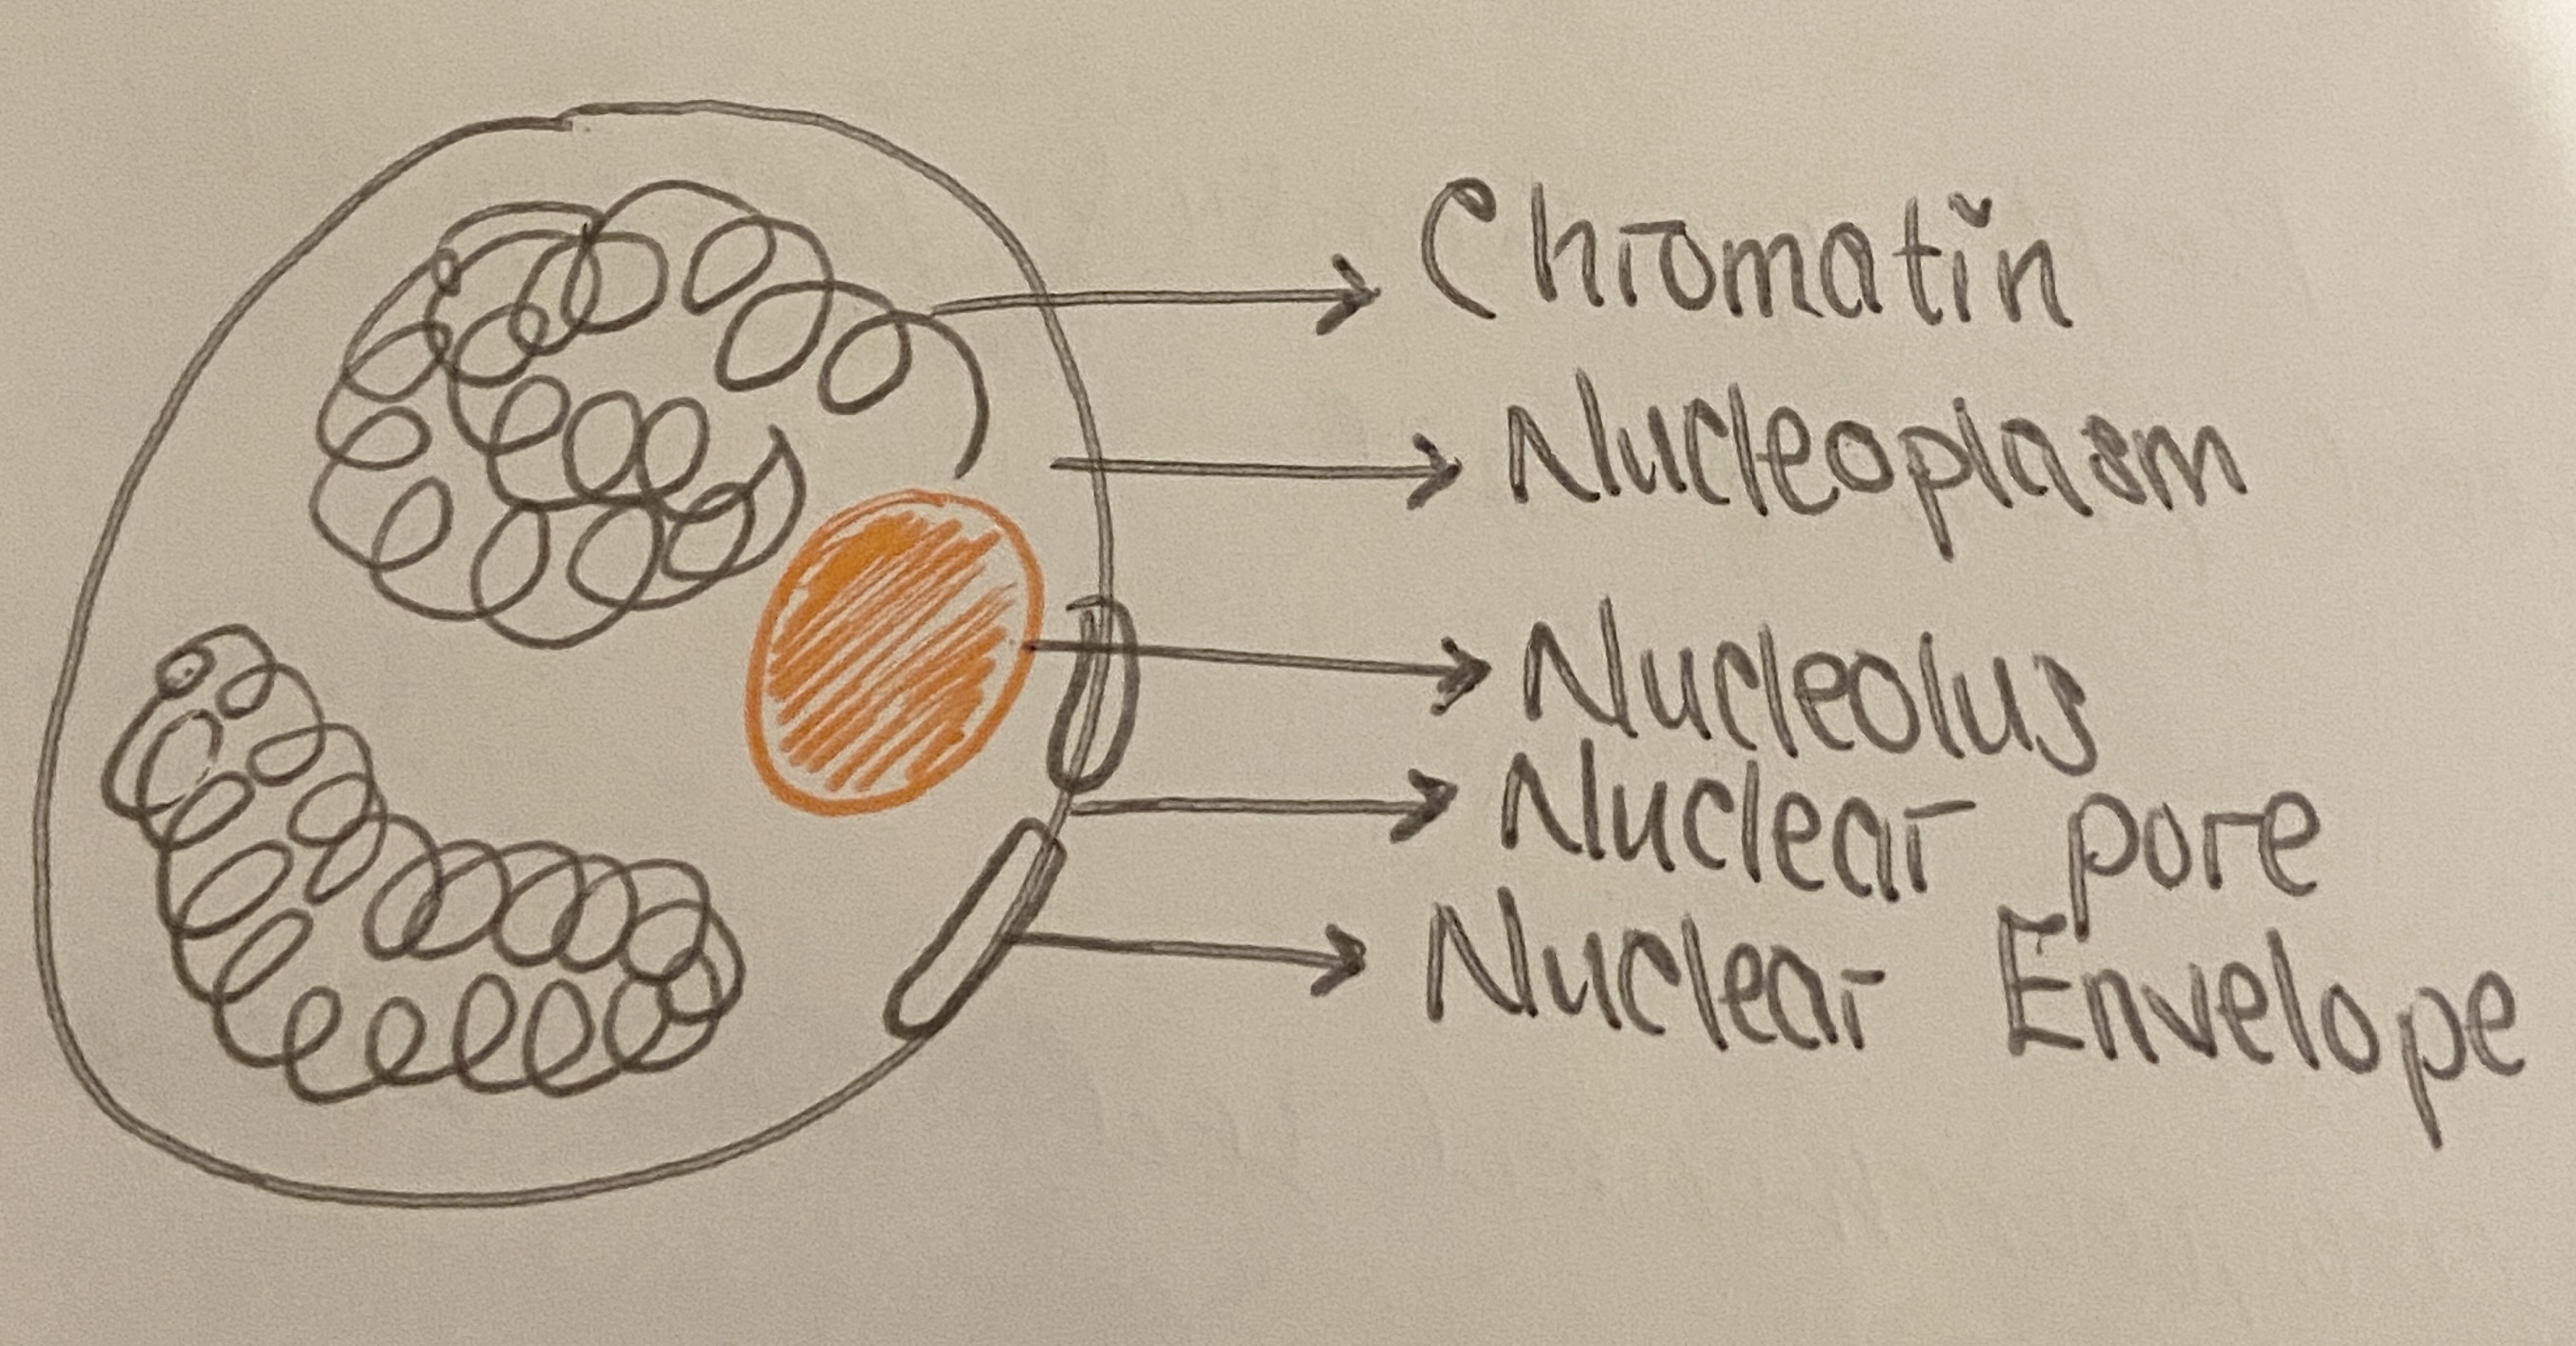 Chromatin
Nucleoplasm
Nucleolus
Nuclear pore
Nuclear Envelope